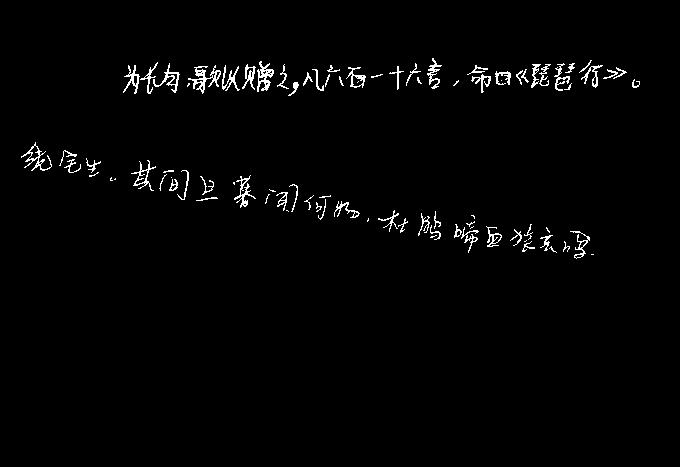 为长句歌以赠之，凡六百一十六言，命曰《琵琶行》。
绕宅生。其间旦暮闻何物，杜鹃啼血猿哀鸣